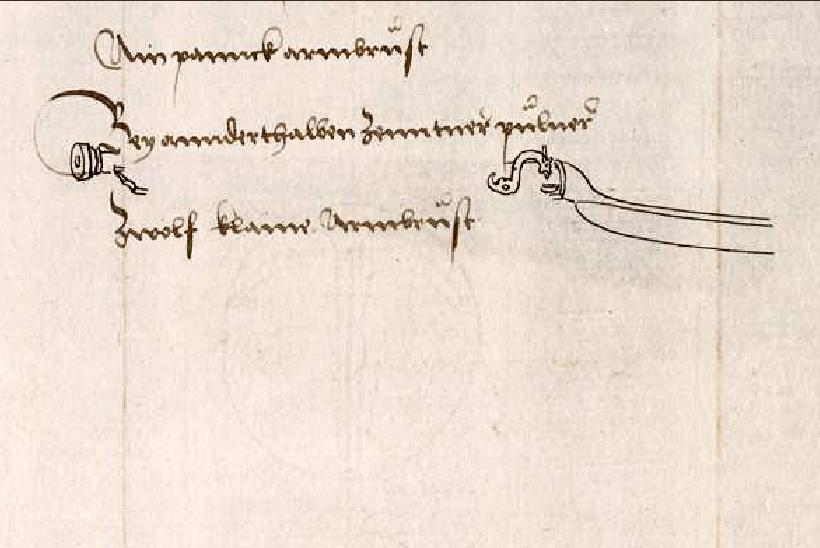 Ain pannck armbrůst
Bey annderthalben Zenntner půluer
Zwolf klaine Armbrůst